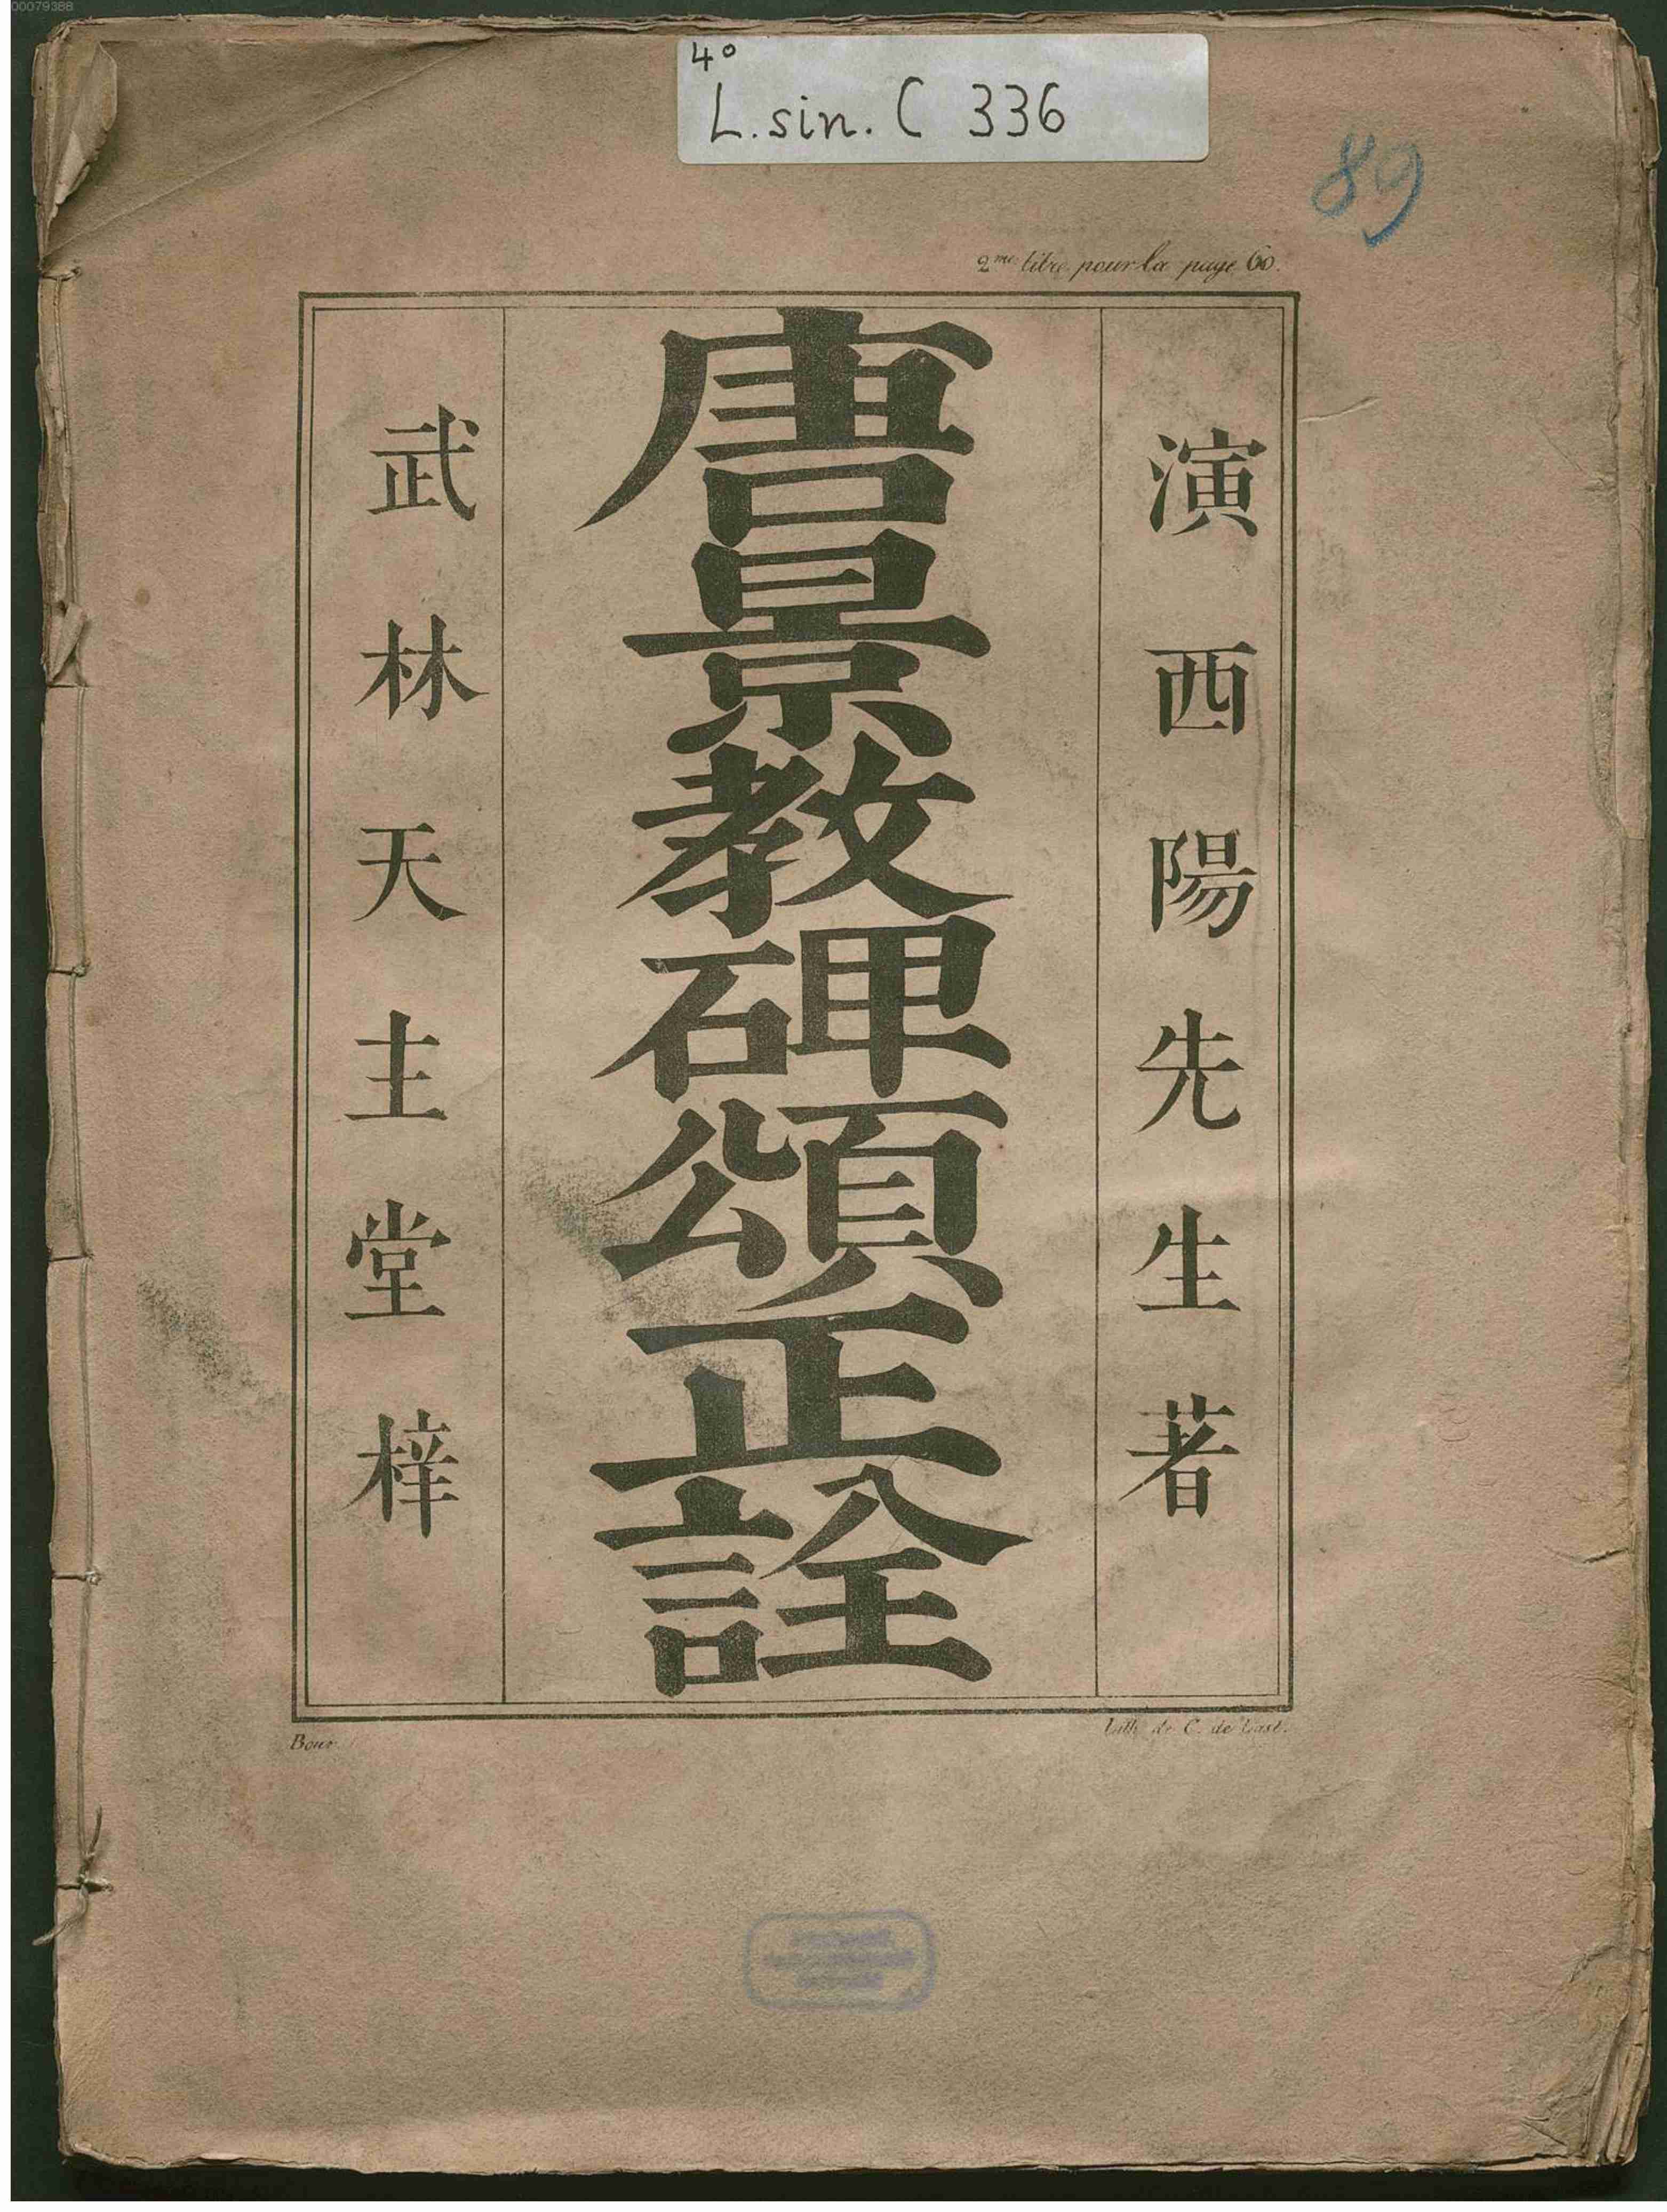 00079388
4°
L. sin. C 336
89
2me titre pour la page 60.
演西陽先生著
唐景教碑頌正詮
武林天主堂梓
Bour
Lith. de C. de Last.